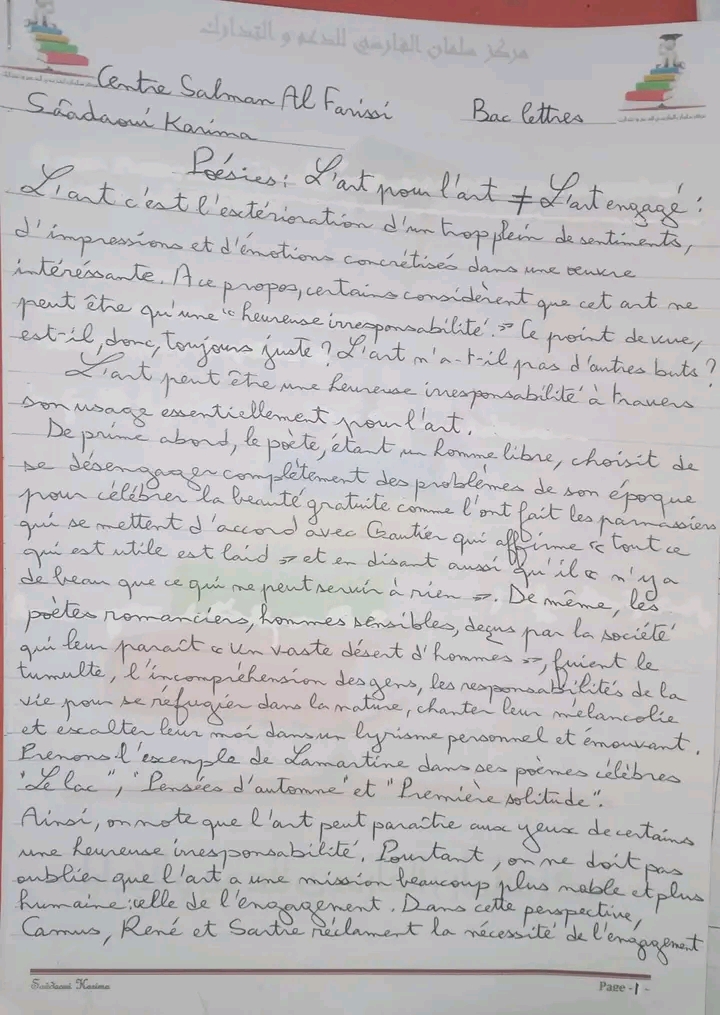 مركز سلمان الفارسي للدعم و التدارك
Centre Salman Al Farissi Bac lettres
Sâadaoui Karima
Poésies : L'art pour l'art ≠ L'art engagé :
L'art c'est l'extérioration d'un trop plein de sentiments,
d'impressions et d'émotions concrétisés dans une œuvre
intéréssante. A ce propos, certains considèrent que cet art ne
peut être qu'une « heureuse irresponsabilité. » Ce point de vue,
est-il, donc, toujours juste ? L'art n'a-t-il pas d'autres buts ?
L'art peut être une heureuse irresponsabilité à travers
son usage essentiellement pour l'art.
De prime abord, le poète, étant un homme libre, choisit de
se désengager complètement des problèmes de son époque
pour célébrer la beauté gratuite comme l'ont fait les parnassiers
qui se mettent d'accord avec Gautier qui affirme « tout ce
qui est utile est laid » et en disant aussi qu'il « n'y a
de beau que ce qui ne peut servir à rien ». De même, les
poètes romanciers, hommes sensibles, deçus par la société
qui leur paraît « Un vaste désert d'hommes », fuient le
tumulte, l'incompréhension des gens, les responsabilités de la
vie pour se réfugier dans la nature, chanter leur mélancolie
et exalter leur moi dans un lyrisme personnel et émouvant.
Prenons l'exemple de Lamartine dans ses poèmes célèbres
"Le lac", "Pensées d'automne" et "Première solitude".
Ainsi, on note que l'art peut paraître aux yeux de certains
une heureuse irresponsabilité. Pourtant, on ne doit pas
oublier que l'art a une mission beaucoup plus noble et plus
humaine : celle de l'engagement. Dans cette perspective,
Camus, René et Sartre réclament la nécessité de l'engagement
Saâdaoui Karima Page -1-